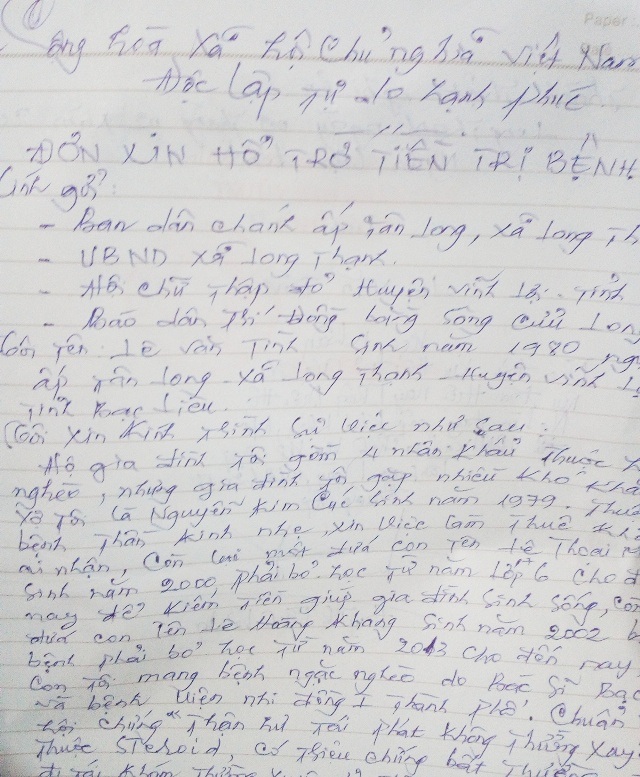 Paper
Cộng hòa xã hội chủ nghĩa việt Nam
Độc lập tự do hạnh phúc
ĐƠN XIN HỔ TRỢ TIỀN TRỊ BỆNH
Kính gửi:
- Ban dân chánh ấp tân long, xã long Th
- UBND xã long Thạnh.
- Hội chữ Thập đỏ Huyện vĩnh lợi. Tỉnh
- Báo dân trí Đồng bằng Sông cửu long
Tôi tên: lê văn Tính Sinh năm 1980
ấp tân long - xã long Thạnh - Huyện vĩnh L
Tỉnh Bạc liêu.
Tôi xin kính trình Sự việc như Sau:
Hộ gia đình tôi gồm 4 nhân khẩu Thuộc
nghèo, nhưng gia đình tôi gặp nhiều khó khă
vợ tôi là Nguyễn kim Cúc Sinh năm 1979.
bệnh Thần kinh nhẹ, xin việc làm Thuê
nhận, còn một đứa con tên lê Thoại
Sinh năm 2000 phải bỏ học từ năm lớp 6 cho đ
nay để kiếm tiền giúp gia đình Sinh Sống, cò
đứa con tên lê Hoàng khang Sinh năm 2002 b
bệnh phải bỏ học từ năm 2013 cho đến nay
con tôi mang bệnh ngặc nghèo do Bác Sĩ Bạc
và bệnh viện nhi đồng 1 Thành phố. Chuẩn
hội chứng "Thận hư tái phát không Thường xay
Thuốc STeroid, có Triệu chứng bất Thư
đi tái khám Thường